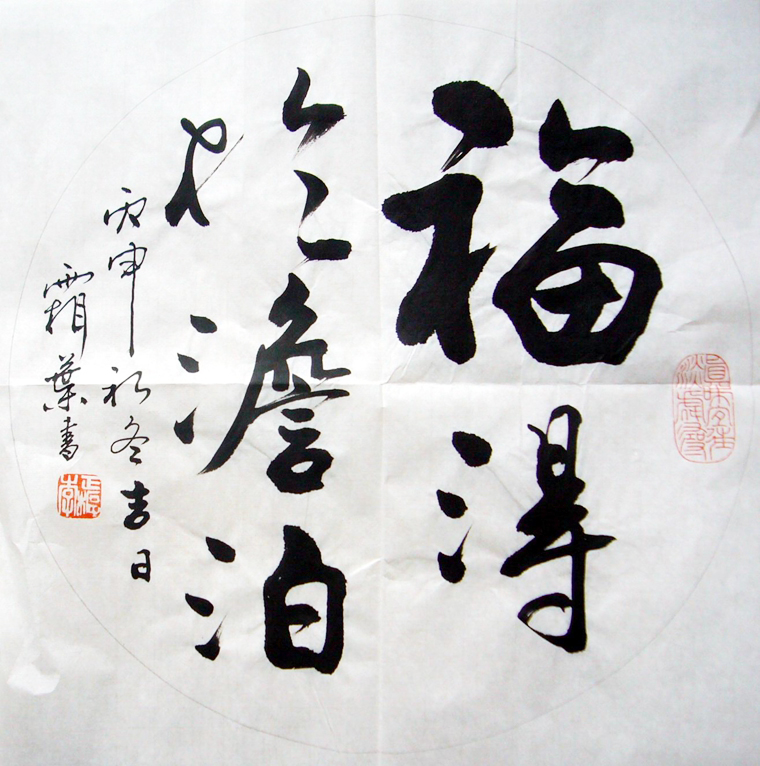 福得
於澹泊
丙申初冬吉日
霜葉書